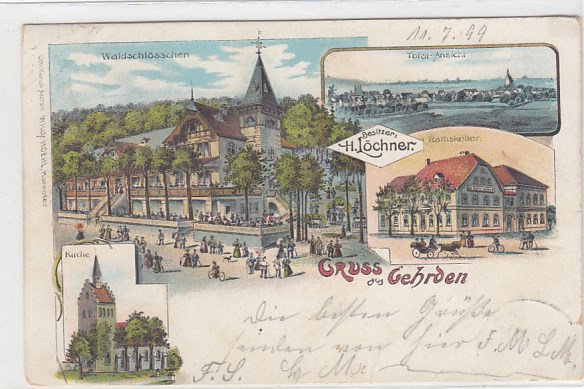 11.7.99
Waldschlösschen
Total-Ansicht
Besitzer:
H. Löchner.
Rathskeller.
Kirche
Gruss
aus Gehrden
Die besten Grüße
senden von hier F. M. L. M.
F. S.